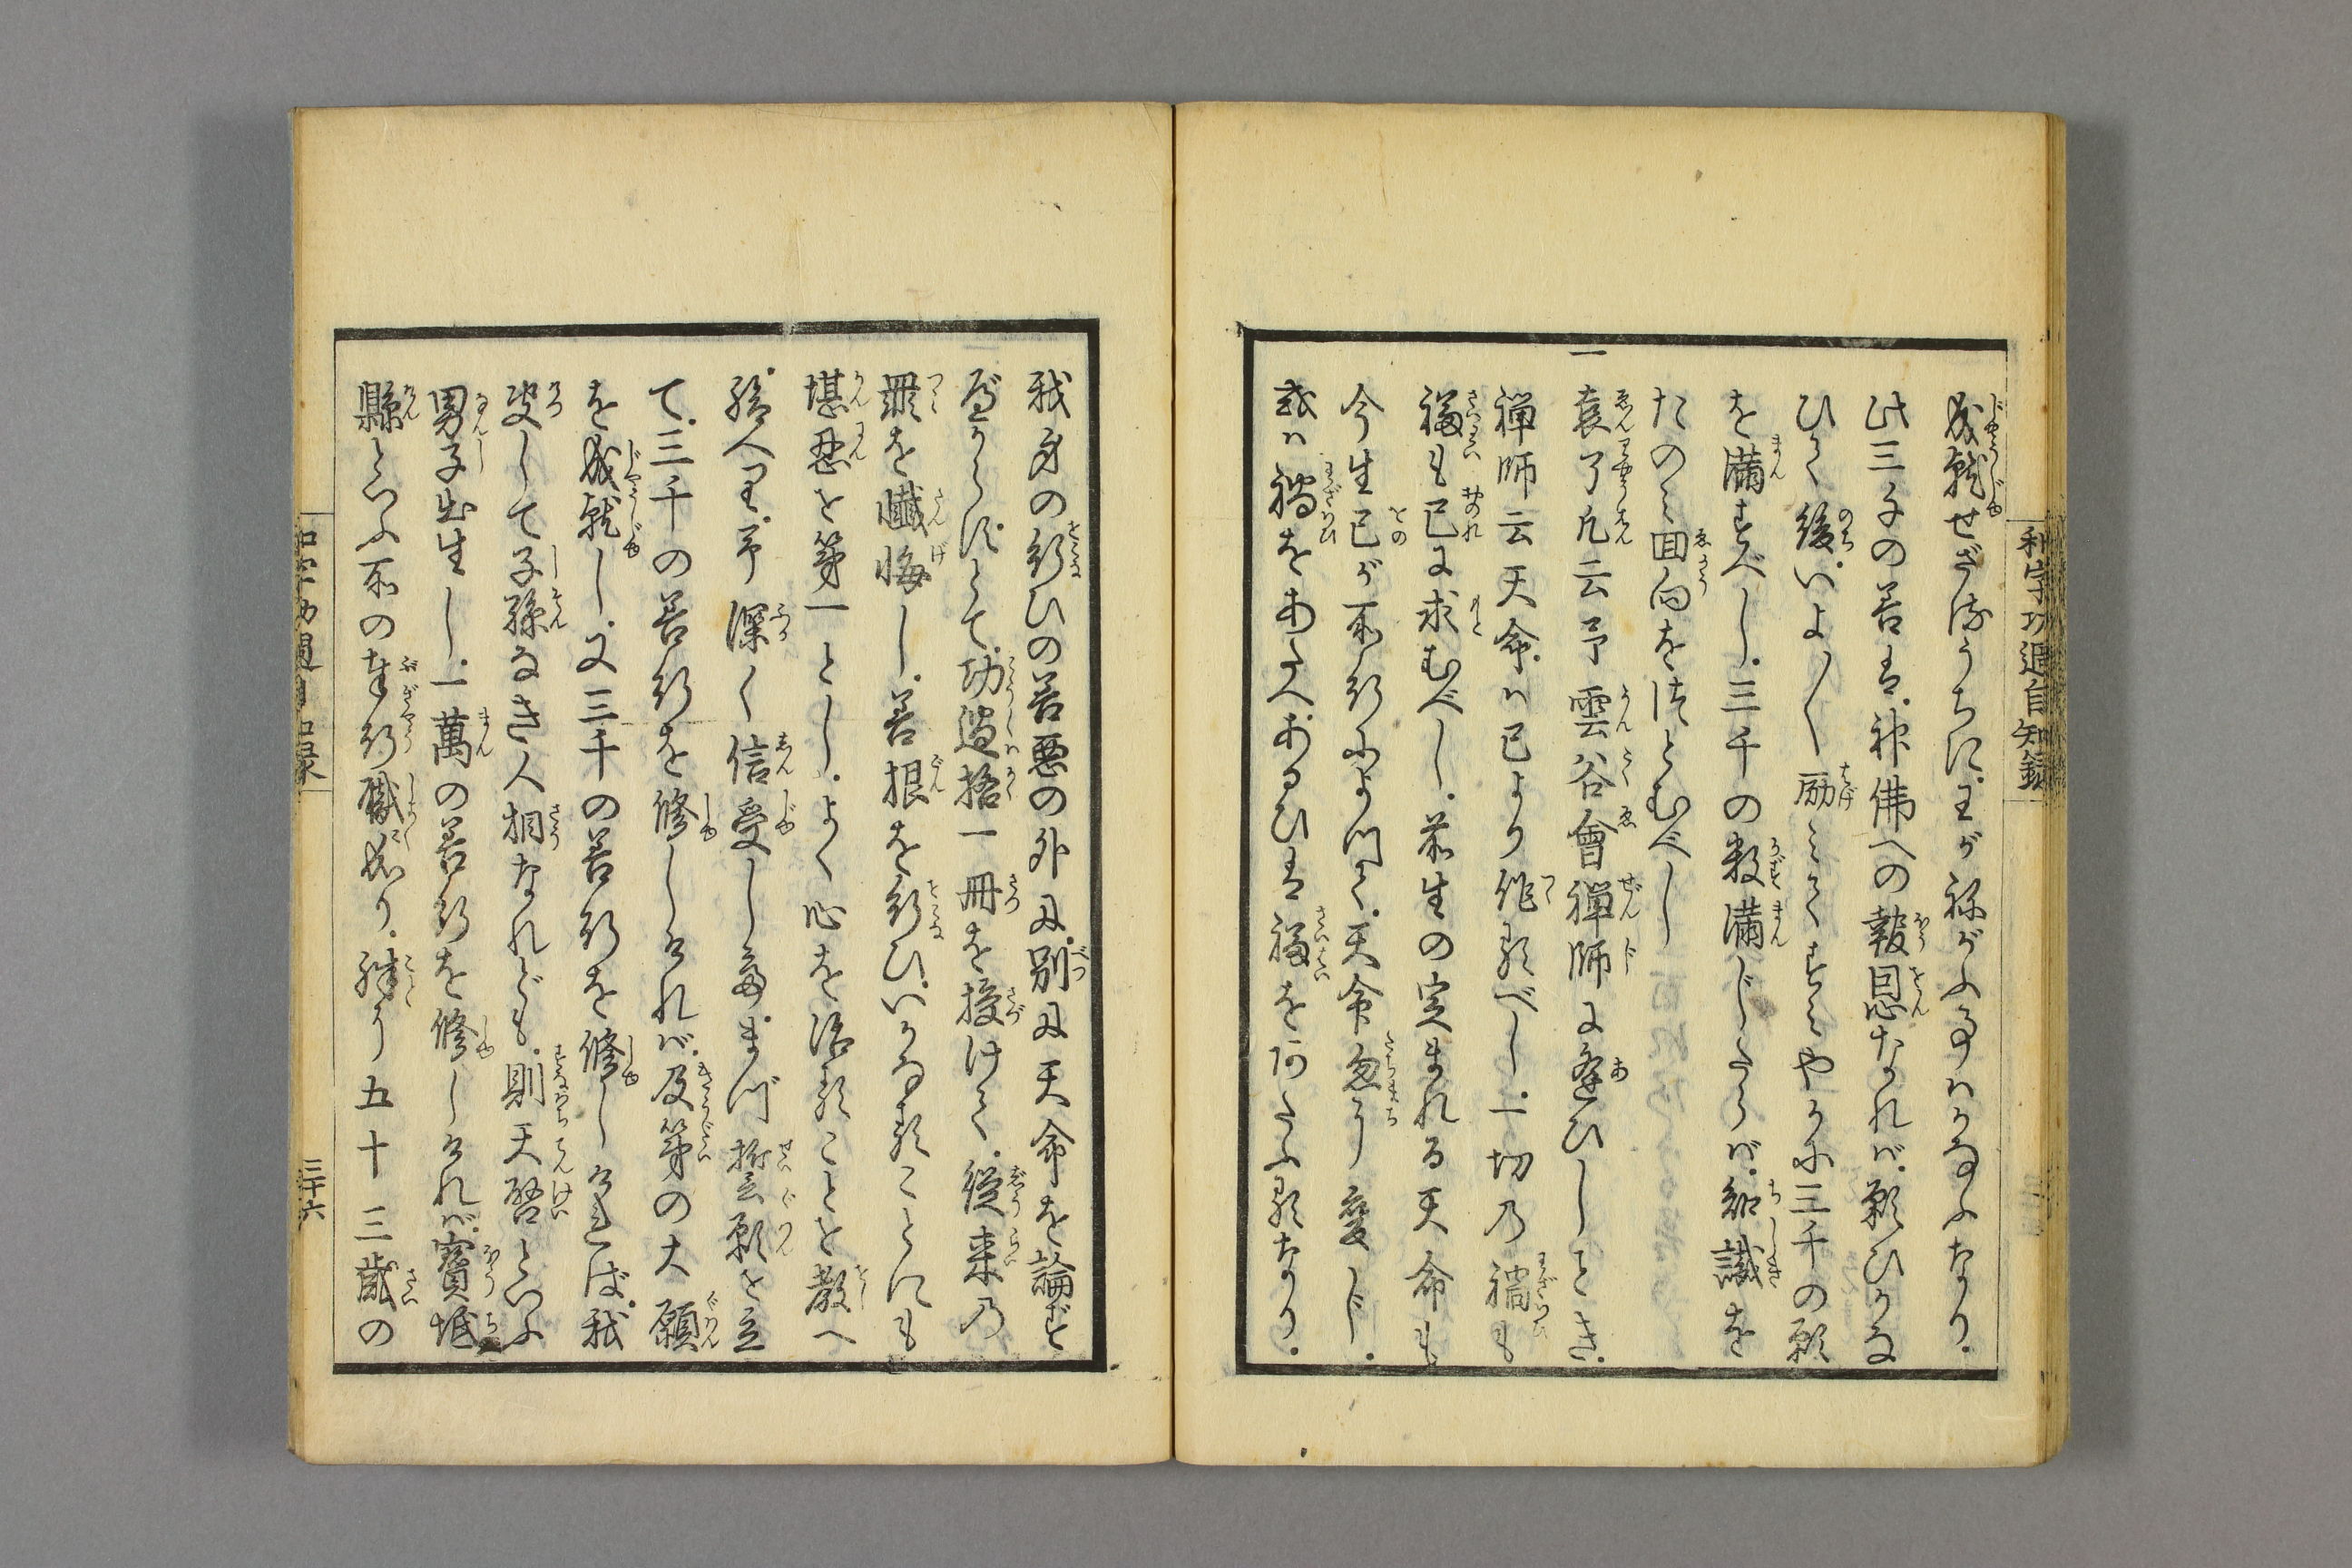 和字功過自知録
成就せざるうちに。わがねがふ事はかなふなり。
此三千の善は。神佛への報恩なれば。願ひかな
ひて後。いよ〳〵励みて。すみやかに三千の願
を満すべし。三千の数満じたらば。知識を
たのみ回向をつとむべし
一 袁了凡云予雲谷會禅師に逢ひしとき。
禅師云天命は己より作るべし。一切乃禍も
福も己に求むべし。前生の定まれる天命も
今生己が所行によつて。天命忽ち変じ。
或は禍をあたへあるひは福をあたふるなり。
我身の行ひの善悪の外に。別に天命を論ず
べからずとて。功過格一冊を授けて。従来乃
罪を懺悔し。善根を行ひ。いかなることにも
堪忍を第一とし。よく心を治ることを教へ
給へり。予深く信受し畢。まづ誓願を立
て。三千の善行を修しければ。及第の大願
を成就し。又三千の善行を修しければ。我
叟して子孫なき人相なれども。則天啓といふ
男子出生し。一萬の善行を修しければ。寳坻
縣といふ所の奉行職に如り。殊に五十三歳の
和字功過自知録
三十六